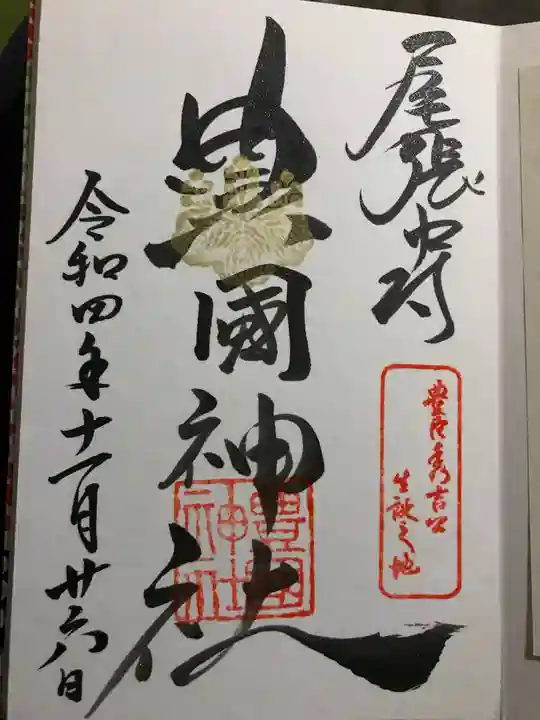 尾張中村
豊臣秀吉公
生誕之地
豊國神社
豊國
神社
令和四年十一月廿六日